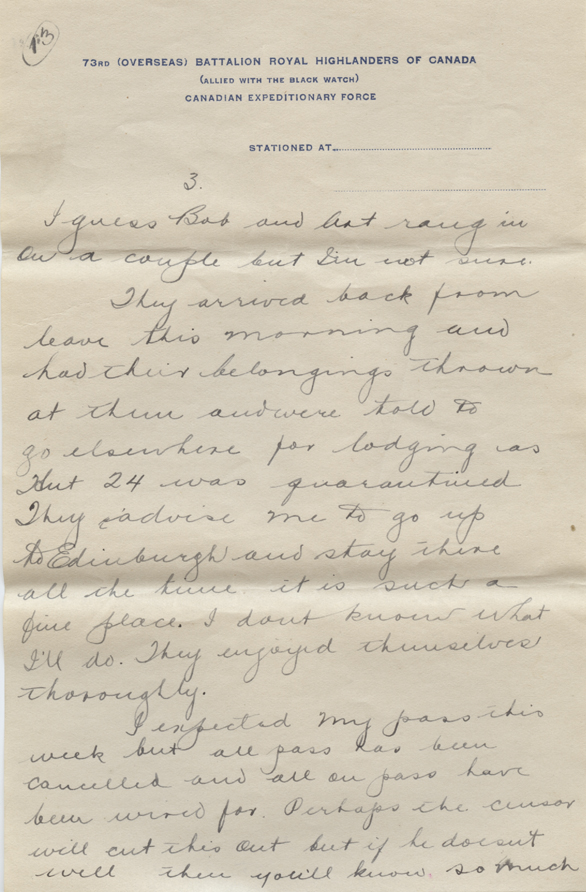 13
73RD (OVERSEAS) BATTALION ROYAL HIGHLANDERS OF CANADA
(ALLIED WITH THE BLACK WATCH)
CANADIAN EXPEDITIONARY FORCE
STATIONED AT
3.
I guess Bob and Art rang in
on a couple but I'm not sure.
They arrived back from
leave this morning and
had their belongings thrown
at them and were told to
go elsewhere for lodging as
Hut 24 was quarantined
They advise me to go up
to Edinburgh and stay there
all the time. it is such a
fine place. I dont know what
I'll do. They enjoyed themselves
thoroughly.
I expected my pass this
week but all pass has been
cancelled and all on pass have
been wired for. Perhaps the censor
will cut this out but if he doesnt
will then you'll know. so much